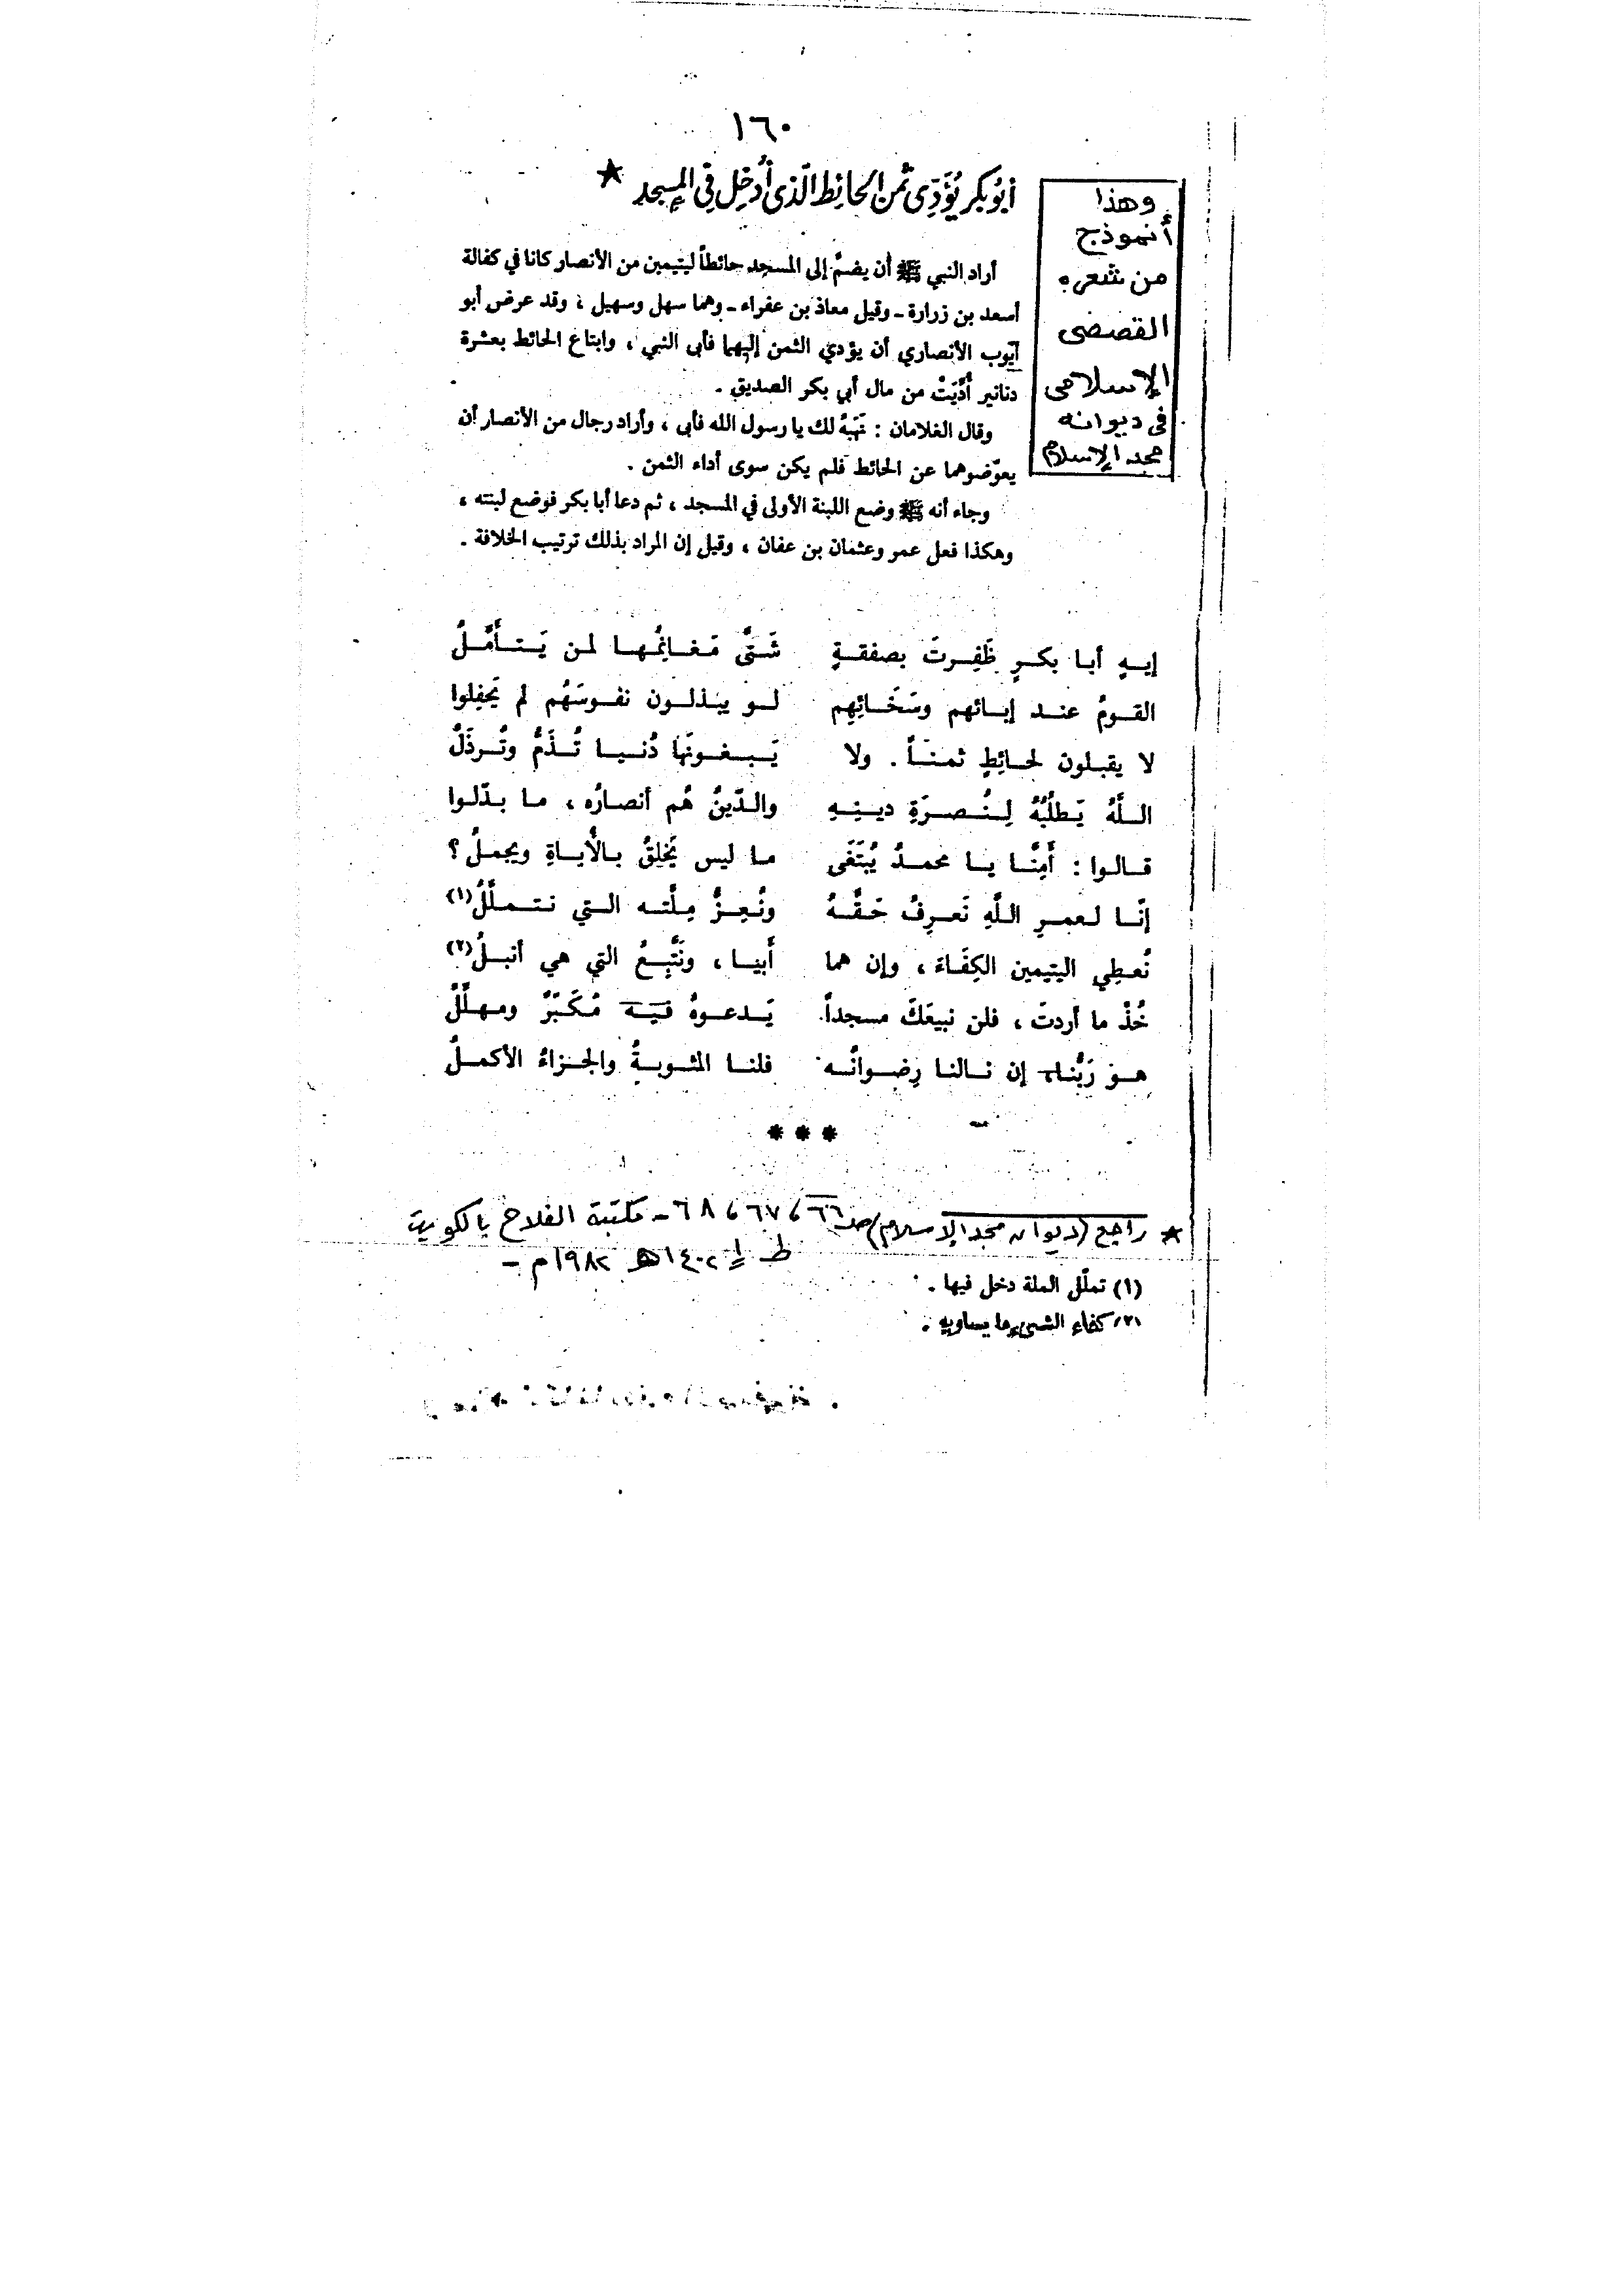 ١٦٠
أبُوبكر يُؤَدِّى ثمن الحائِط الّذى أُدخِل فِى المسِجدِ ★
وهذا
أنموذج
من شعره
القصصى
الإسلامى
فى ديوانه
مجد الإسلام
أراد النبي ﷺ أن يضمَّ إلى المسجد حائطاً ليتيمين من الأنصار كانا في كفالة
أسعد بن زرارة ـ وقيل معاذ بن عفراء ـ وهما سهل وسهيل ، وقد عرض أبو
أيّوب الأنصاري أن يؤدي الثمن إليهما فأبى النبي ، وابتاع الحائط بعشرة
دنانير أُدِّيَتْ من مال أبي بكر الصديق .
وقال الغلامان : نَهَبهُ لك يا رسول الله فأبى ، وأراد رجال من الأنصار أن
يعوّضوهما عن الحائط فلم يكن سوى أداء الثمن .
وجاء أنه ﷺ وضع اللبنة الأولى في المسجد ، ثم دعا أبا بكر فوضع لبنته ،
وهكذا فعل عمر وعثمان بن عفان ، وقيل إن المراد بذلك ترتيب الخلافة .
إيــهٍ أبــا بكــرٍ ظَفِــرتَ بصفقــةٍ شَــتَّى مَـغـانِمُـهـا لمـن يَـتـأمَّـلُ
القــومُ عنــد إبــائهم وسَخَــائِهِم لــو يبـذلــون نفـوسَهُم لم يَحفِلوا
لا يقبلون لحــائِطٍ ثمنــاً . ولا يَــبــغــونَها دُنـيــا تُــذَمُّ وتُــرذَلُ
اللَّهُ يَـطلُبُهُ لِـنُــصــرَةِ ديــنِــهِ والـدّينُ هُم أنصـارُه ، مـا بـدّلـوا
قــالـوا : أَمِنَّــا يــا محمــدُ يُبْتَغَى مـا ليس يَخلِقُ بـالْأُبـاةِ ويجمـلُ ؟
إنّــا لـعمـرِ اللَّهِ نَعــرِفُ حَـقَّـهُ ونُـعِـزُّ مِلَّتــه الــتي نـتـمـلَّلُ(١)
نُعـطِي اليتيمين الكِفَـاءَ ، وإن هما أَبيـا ، ونَتَّبِـعُ التي هي أنبــلُ(٢)
خُذْ ما أردتَ ، فلن نبيعَكَ مسجداً يَــدعــوهُ فيَــه مُكَـبِّرٌ ومهـلِّلُ
هــو رَبُّنــا، إن نــالنـا رِضـوانُــه فلنــا المثــوبــةُ والجــزاءُ الأكمــلُ
***
★ راجع (ديوان مجد الإسلام) صـ ٦٦ ، ٦٧ ، ٦٨ ـ مكتبة الفلاح بالكويت
طـ ١ ١٤٠٢ هـ ١٩٨٢م ـ
(١) تملّل الملة دخل فيها .
(٢) كفاء الشيء ما يساويه .